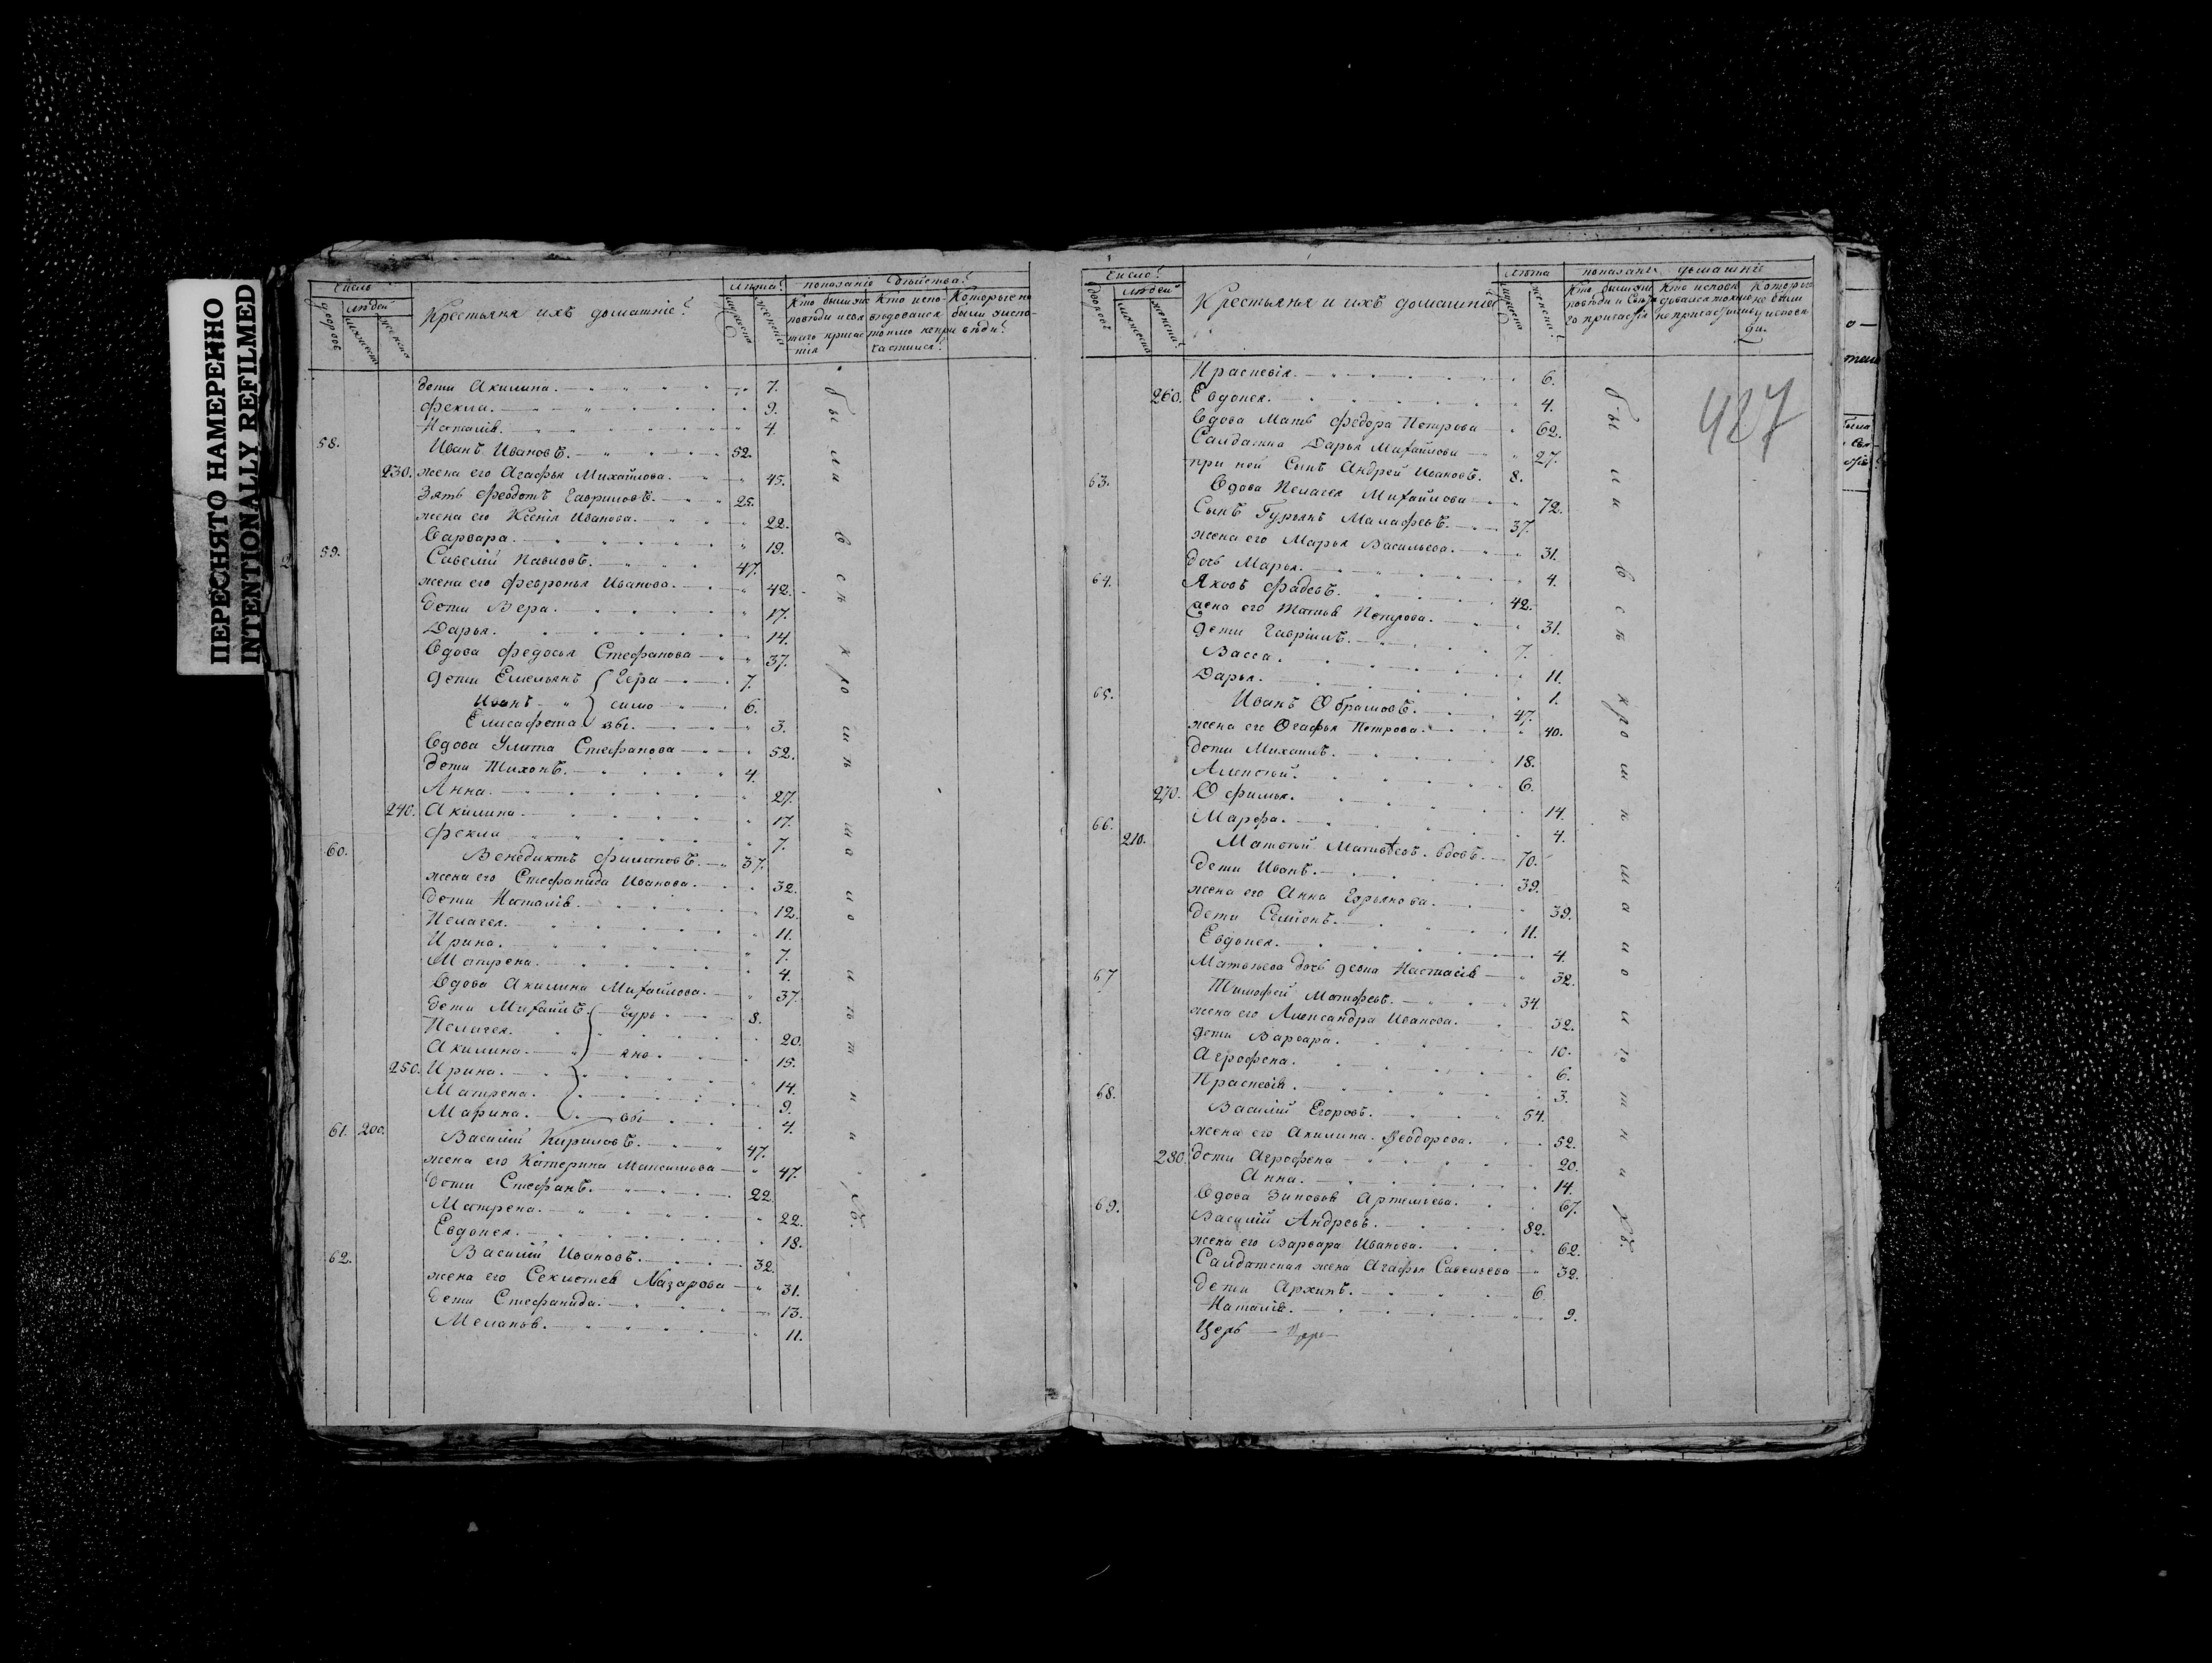 ПЕРЕСНЯТО НАМЕРЕННО
INTENTIONALLY REFILMED
Число
дворовъ
людей
Крестьяня ихъ домашніе
лѣта
показаніе
дети Акилина. 7.
Фекла. 9.
Наталія. 4.
58. Иванъ Ивановъ. 52.
230. жена его Агафья Михайлова. 45.
Зять Феодотъ Гавриловъ. 25.
жена его Ксенія Иванова. 22.
Варвара. 19.
59. Савелій Павловъ. 47.
жена его Февронья Иванова. 42.
дети Вера. 17.
Дарья. 14.
Вдова Федосья Стефанова 37.
дети Емельянъ Гера 7.
Иванъ симо 6.
Елисафета вы. 3.
Вдова Улита Стефанова 52.
дети Тихонъ. 4.
Анна. 27.
240. Акилина. 17.
Фекла 7.
60. Венедиктъ Филиповъ. 37.
жена его Стефанида Иванова. 32.
дети Наталія. 12.
Пелагея. 11.
Ирина. 7.
Матрена. 4.
Вдова Акилина Михайлова. 37.
дети Михаилъ. Гурь 8.
Пелагея. 20.
Акилина. яно 15.
250. Ирина. 14.
Матрена. 9.
Марина. вы 4.
61. 200. Василій Кириловъ. 47.
жена его Катерина Максимова 47.
дети Стефанъ. 22.
Матрена. 22.
Евдокея. 18.
62. Василій Ивановъ. 32.
жена его Секлетея Назарова 31.
дети Стефанида. 13.
Меланья. 11.
были всѣ кромѣ малолѣтна
Число
Крестьяня и ихъ домашніе
лѣта
показаніе домашніе
427
Праскевія. 6.
260. Евдокея. 4.
Вдова Мать Федора Петрова 62.
Салдатка Дарья Михайлова 27.
при ней Сынъ Андрей Ивановъ. 8.
63. Вдова Пелагея Михайлова 72.
Сынъ Гурьянъ Малафеевъ. 37.
жена его Марья Васильева. 31.
дочь Марья. 4.
64. Яковъ Фадеевъ. 42.
жена его Татьяна Петрова. 31.
дети Гавріилъ. 7.
Васса. 11.
Дарья. 1.
65. Иванъ Обрамовъ. 47.
жена его Огафья Петрова. 40.
дети Михаилъ. 18.
Алексѣй. 6.
270. Офимья. 14.
Марфа. 4.
66. 210. Матвѣй Матвѣевъ. вдовъ. 70.
дети Иванъ. 39.
жена его Анна Гурьянова. 39.
дети Семіонъ. 11.
Евдокея. 4.
Матвѣева дочь девка Настасія 32.
67 Тимофей Матфеевъ. 34.
жена его Александра Иванова. 32.
дети Варвара. 10.
Агрофена. 6.
Праскевія. 3.
68. Василій Егоровъ. 54.
жена его Акилина Феодорова. 52.
280. дети Агрофена 20.
Анна. 14.
Вдова Зиновья Артемьева. 67.
69. Василій Андреевъ. 82.
жена его Варвара Иванова. 62.
Салдатская жена Агафья Савельева 32.
дети Архипъ. 6.
Наталія. 9.
были всѣ кромѣ малолѣтна